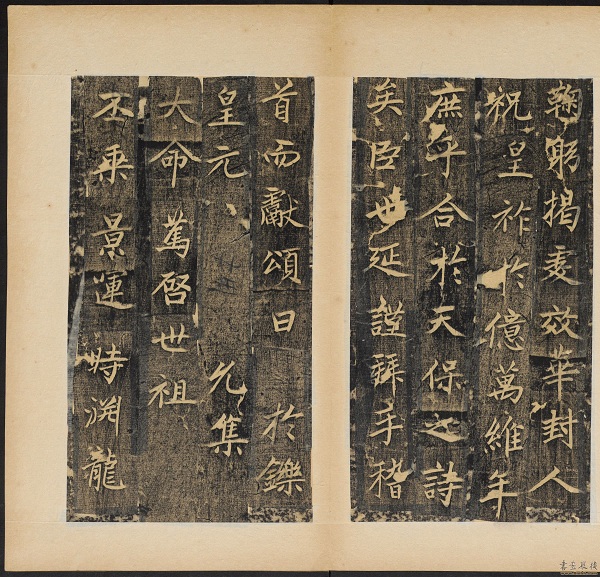 鞠躬揭虔效華封人
祝皇祚於億萬維年
庶乎合於天保之詩
矣臣世延謹拜手稽
首而獻頌曰 於鑠
皇元、 允集
大命 篤啓世祖
丕乘景運 時淵龍